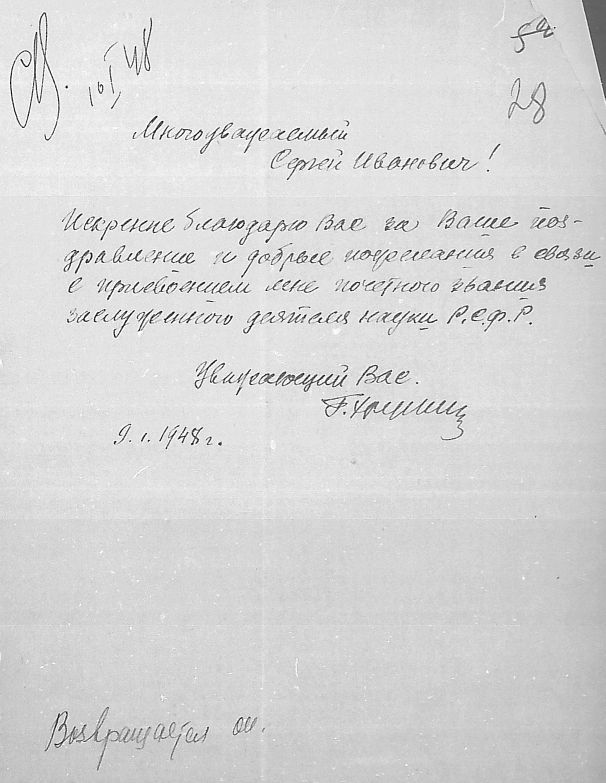 16 I 48
52
28
Многоуважаемый
Сергей Иванович!
Искренне благодарю Вас за Ваше поз-
дравление и добрые пожелания в связи
с присвоением мне почетного звания
заслуженного деятеля науки Р.С.Ф.Р.
Уважающий Вас.
9.1.1948 г.
Возвращается